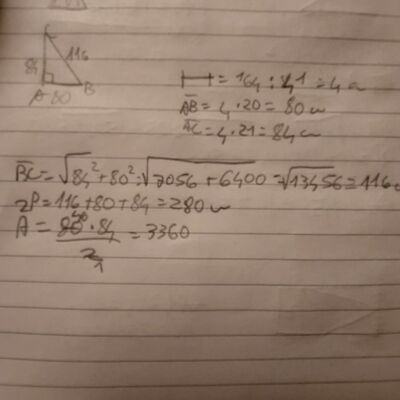 C
84 116
A 80 B
= 164 : 41 = 4 cm
AB = 4 · 20 = 80 cm
AC = 4 · 21 = 84 cm
BC = √84² + 80² = √7056 + 6400 = √13456 = 116 c
2P = 116 + 80 + 84 = 280 cm
A = 80 40 · 84 = 3360
2 1